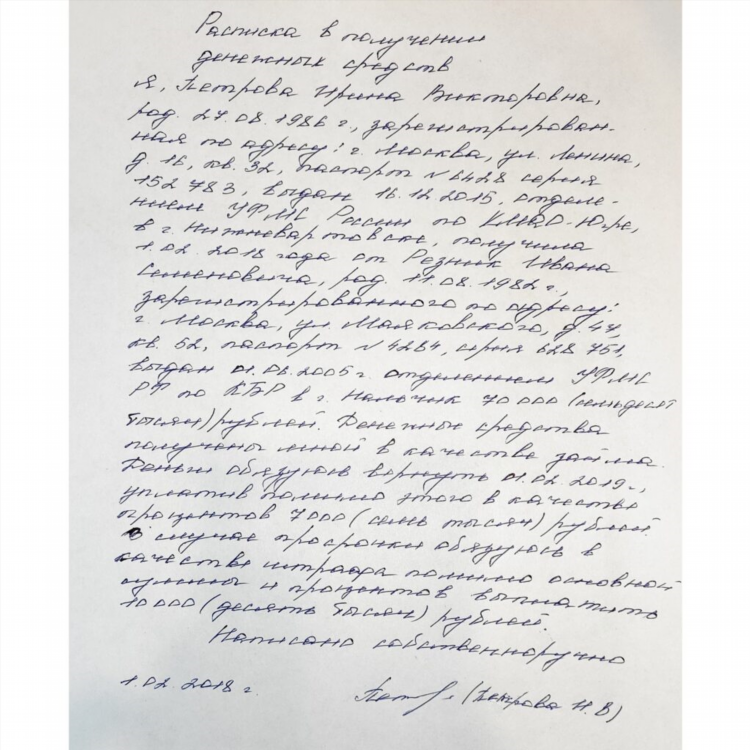 Расписка в получении
денежных средств
Я, Петрова Ирина Викторовна,
род. 27.08.1986 г., зарегистрирован-
ная по адресу: г. Москва, ул. Ленина,
д. 16, кв. 32, паспорт № 6428 серия
152 783, выдан 16.12.2015, отделе-
нием УФМС России по ХМАО-Югре,
в г. Нижневартовске, получила
1.02.2018 года от Резник Ивана
Семеновича, род. 11.08.1982 г.,
зарегистрированного по адресу:
г. Москва, ул. Маяковского, д. 47,
кв. 52, паспорт № 4284, серия 628 751,
выдан 01.06.2005 г. отделением УФМС
РФ по КБР в г. Нальчик 70 000 (семьдесят
тысяч) рублей. Денежные средства
получены мной в качестве займа.
Деньги обязуюсь вернуть 01.02.2019 г.,
уплатив помимо этого в качестве
процентов 7000 (семь тысяч) рублей.
В случае просрочки обязуюсь в
качестве штрафа помимо основной
суммы и процентов выплатить
10 000 (десять тысяч) рублей.
Написано собственноручно
1.02.2018 г. (Петрова И.В)